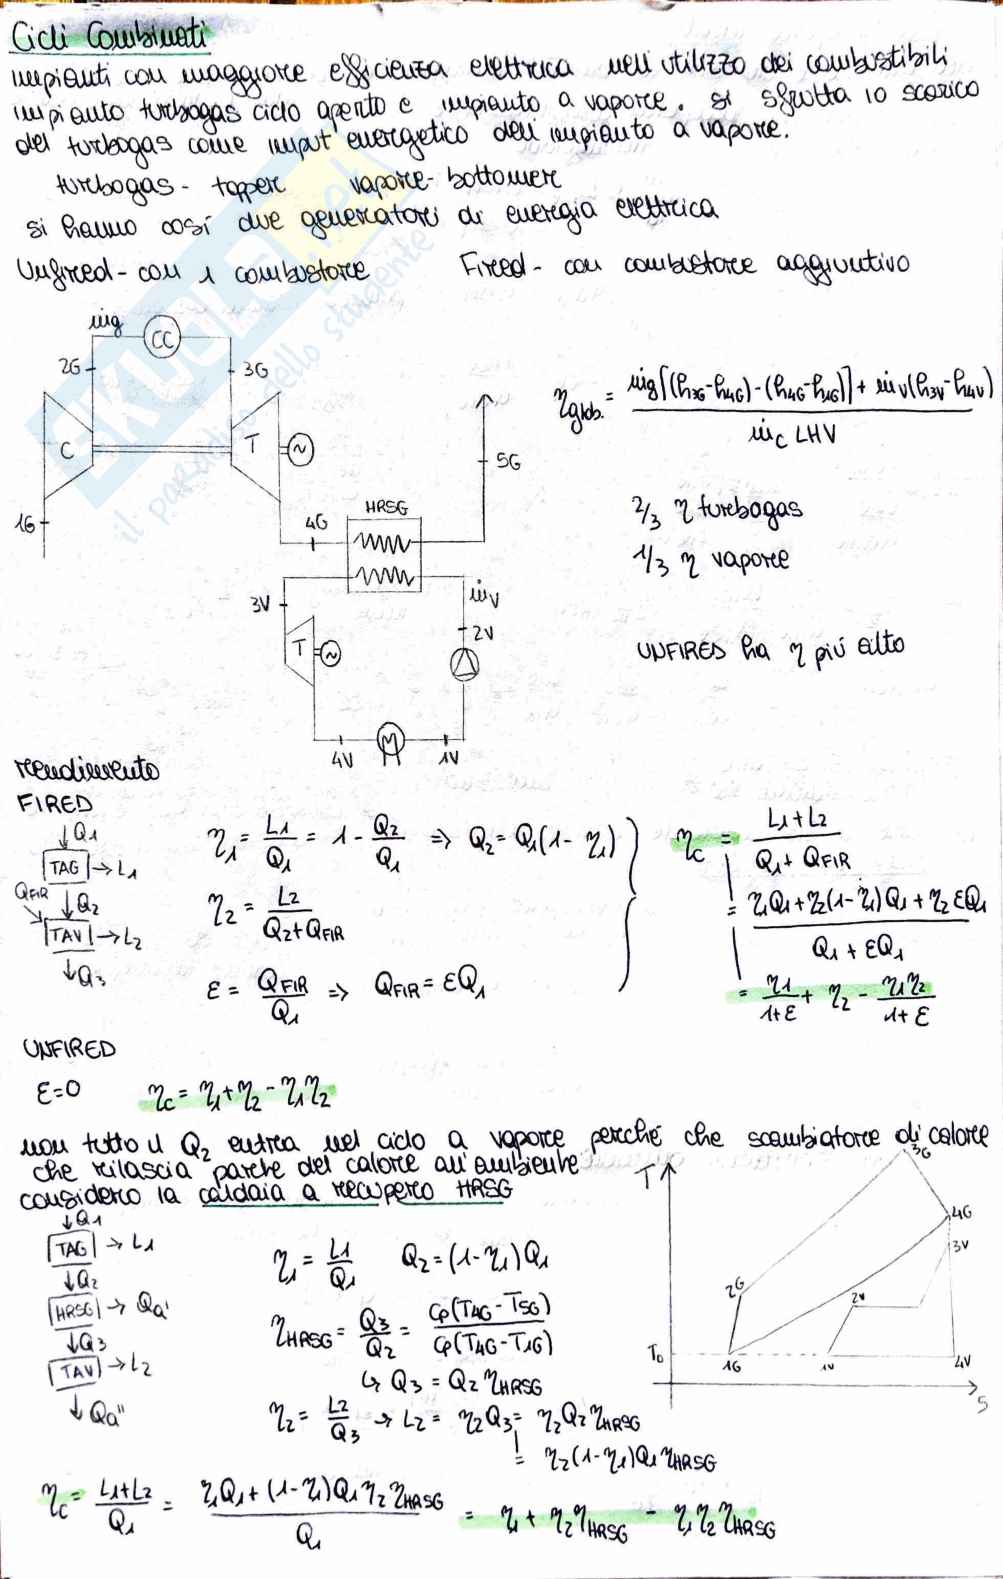 Cicli Combinati
impianti con maggiore efficienza elettrica nell'utilizzo dei combustibili
impianto turbogas ciclo aperto e impianto a vapore. si sfrutta lo scarico
del turbogas come imput energetico dell'impianto a vapore.
turbogas - topper vapore - bottomer
si hanno così due generatori di energia elettrica
Unfired - con 1 combustore Fired - con combustore aggiuntivo
SKUOLA.net
il paradiso dello studente
ṁg CC
2G 3G
C T ~
1G 4G HRSG 5G
3V ṁv
T ~ 2V
4V 1V
ηglob. = ṁg[(h3G-h4G)-(h4G-h1G)] + ṁv(h3V-h4V) / ṁc LHV
2/3 η turbogas
1/3 η vapore
UNFIRED ha η più alto
rendimento
FIRED
↓Q1
TAG → L1
QFIR ↓Q2
TAV → L2
↓Q3
η1 = L1/Q1 = 1 - Q2/Q1 ⇒ Q2 = Q1(1-η1)
η2 = L2/(Q2+QFIR)
ε = QFIR/Q1 ⇒ QFIR = εQ1
ηc = (L1+L2)/(Q1+QFIR)
= (η1Q1+η2(1-η1)Q1+η2εQ1)/(Q1+εQ1)
= η1/(1+ε) + η2 - η1η2/(1+ε)
UNFIRED
ε=0 ηc = η1+η2-η1η2
non tutto il Q2 entra nel ciclo a vapore perché che scambiatore di calore
che rilascia parte del calore all'ambiente
considero la caldaia a recupero HRSG
↓Q1
TAG → L1
↓Q2
HRSG → Qa'
↓Q3
TAV → L2
↓Qa''
η1 = L1/Q1 Q2 = (1-η1)Q1
ηHRSG = Q3/Q2 = cp(T4G-T5G)/cp(T4G-T1G)
↳ Q3 = Q2 ηHRSG
η2 = L2/Q3 → L2 = η2Q3 = η2Q2ηHRSG
= η2(1-η1)Q1ηHRSG
T 3G
4G
3V
2G 2V
T0 1G 1V 4V
S
ηc = (L1+L2)/Q1 = (η1Q1+(1-η1)Q1η2ηHRSG)/Q1 = η1 + η2ηHRSG - η1η2ηHRSG